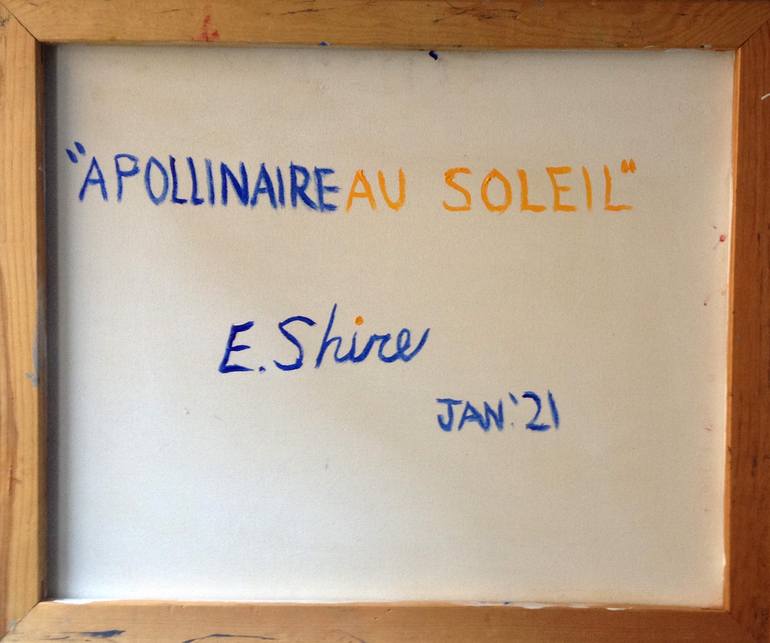 "APOLLINAIRE AU SOLEIL"
E. Shire
JAN. '21